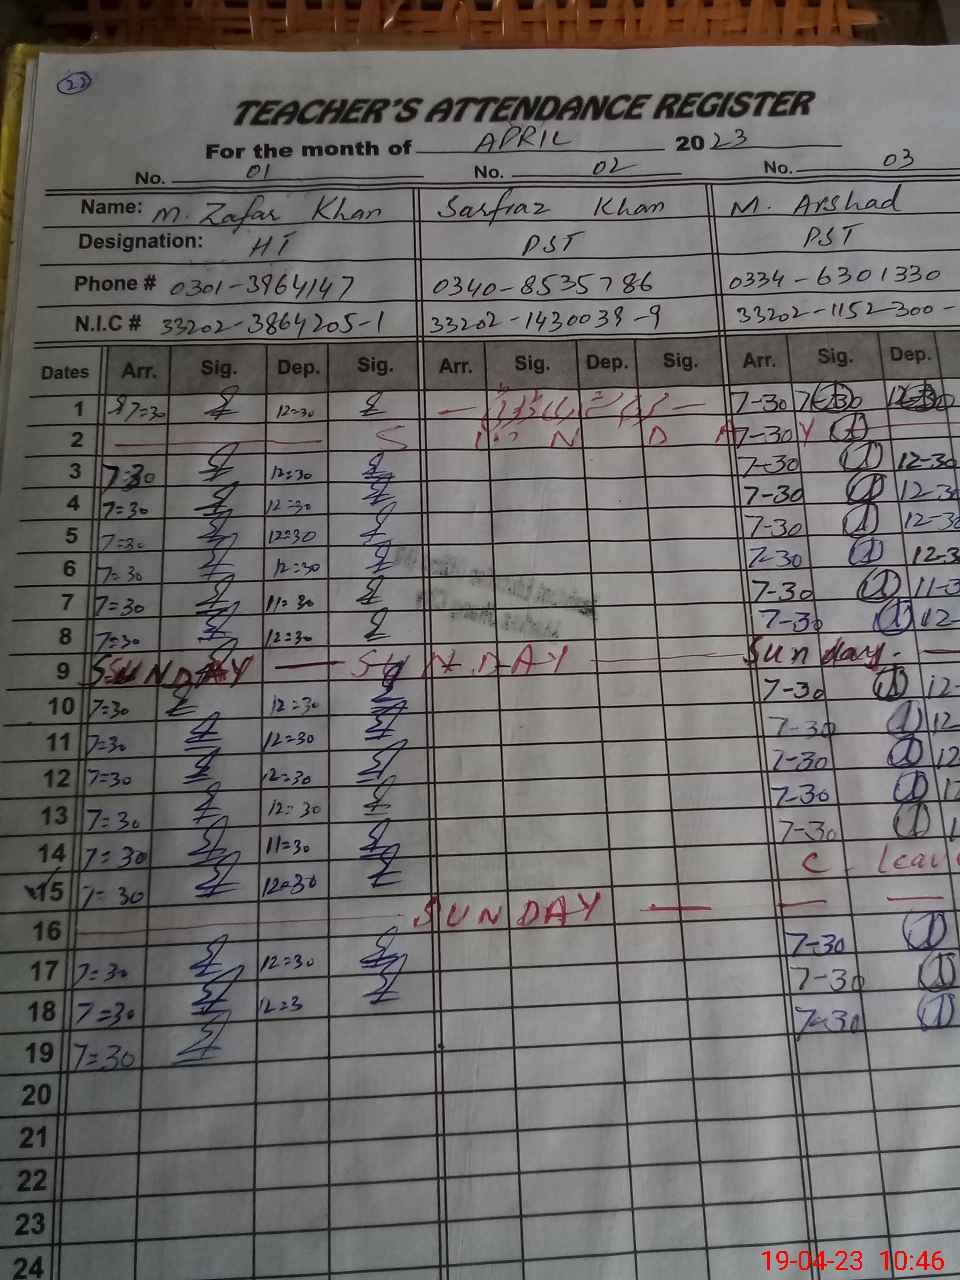 22
TEACHER'S ATTENDANCE REGISTER
For the month of APRIL 2023
No. 01 No. 02 No. 03
Name: M. Zafar Khan Sarfraz Khan M. Arshad
Designation: HT PST PST
Phone # 0301-3964147 0340-8535786 0334-6301330
N.I.C # 33202-3864205-1 33202-1430039-9 33202-1152-300-
Dates Arr. Sig. Dep. Sig. Arr. Sig. Dep. Sig. Arr. Sig. Dep.
1 7=30 12=30 7-30
2 S U N D A Y 7-30
3 7=30 12=30 7-30 12-30
4 7=30 12=30 7-30 12-30
5 7=30 12=30 7-30 12-30
6 7=30 12=30 7-30 12-3
7 7=30 11=30 7-30 11-3
8 7=30 12=30 7-30 12-
9 SUNDAY — SUNDAY — Sunday. —
10 7=30 12=30 7-30 12-
11 7=30 12=30 7-30 12
12 7=30 12=30 7-30 12
13 7=30 12=30 7-30 12
14 7=30 11=30 7-30 1
15 7=30 12=30 C. leave
16 SUNDAY — — —
17 7=30 12=30 7-30
18 7=30 12=3 7-30
19 7=30 7-30
20
21
22
23
24
19-04-23 10:46